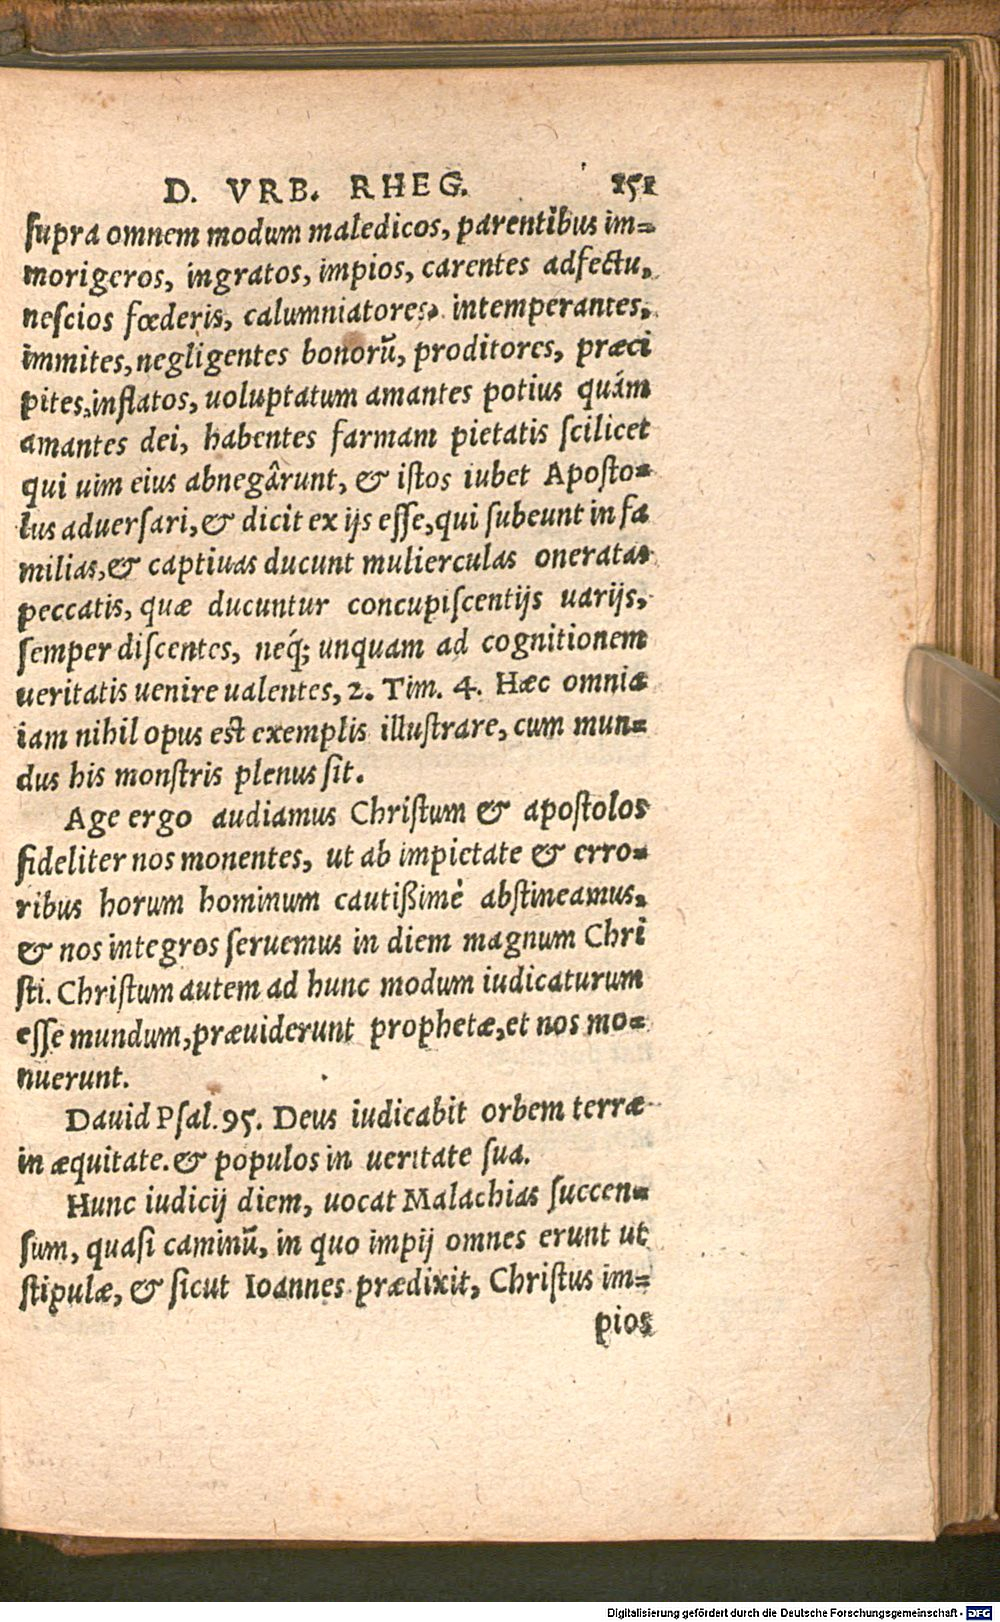 D. VRB. RHEG. 151
ſupra omnem modum maledicos, parentibus im=
morigeros, ingratos, impios, carentes adfectu,
neſcios fœderis, calumniatores, intemperantes,
immites, negligentes bonorũ, proditores, præci
pites, inflatos, uoluptatum amantes potius quám
amantes dei, habentes farmam pietatis ſcilicet
qui uim eius abnegârunt, & iſtos iubet Apoſto=
lus aduerſari, & dicit ex ijs eſſe, qui ſubeunt in fa
milias, & captiuas ducunt mulierculas oneratas
peccatis, quæ ducuntur concupiſcentijs uarijs,
ſemper diſcentes, neq́; unquam ad cognitionem
ueritatis uenire ualentes, 2. Tim. 4. Hæc omnia
iam nihil opus est exemplis illuſtrare, cum mun=
dus his monſtris plenus ſit.
Age ergo audiamus Chriſtum & apoſtolos
fideliter nos monentes, ut ab impietate & erro=
ribus horum hominum cautißimè abſtineamus,
& nos integros ſeruemus in diem magnum Chri
ſti. Chriſtum autem ad hunc modum iudicaturum
eſſe mundum, præuiderunt prophetæ, et nos mo=
nuerunt.
Dauid Pſal. 95. Deus iudicabit orbem terræ
in æquitate. & populos in ueritate ſua.
Hunc iudicij diem, uocat Malachias ſuccen=
ſum, quaſi caminũ, in quo impij omnes erunt ut
ſtipulæ, & ſicut Ioannes prædixit, Chriſtus im=
pios
Digitalisierung gefördert durch die Deutsche Forschungsgemeinschaft - DFG